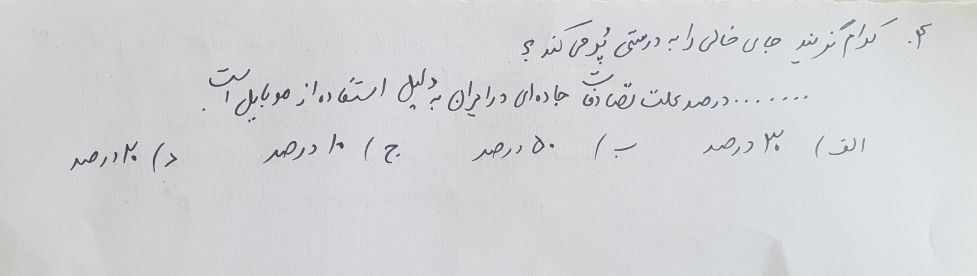 ۴. کدام گزینه جای خالی را به درستی پُر می کند؟
........ درصد علت تصادفات جاده ای در ایران به دلیل استفاده از موبایل است.
الف) ۳۰ درصد ب) ۵۰ درصد ج) ۱۰ درصد د) ۲۰ درصد